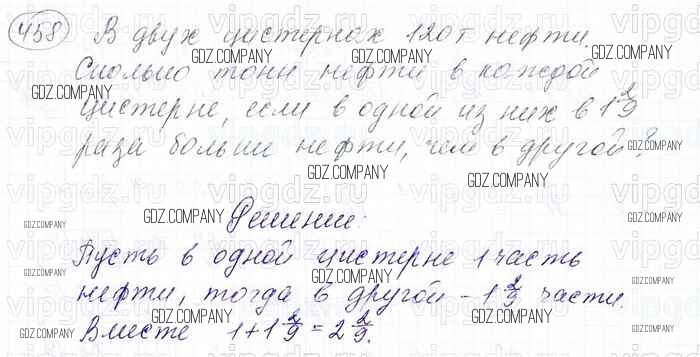 458 В двух цистернах 120т нефти.
Сколько тонн нефти в каждой
цистерне, если в одной из них в 1 2/9
раза больше нефти, чем в другой?
Решение:
Пусть в одной цистерне 1 часть
нефти, тогда в другой – 1 2/9 части.
Вместе 1+1 2/9 = 2 2/9.